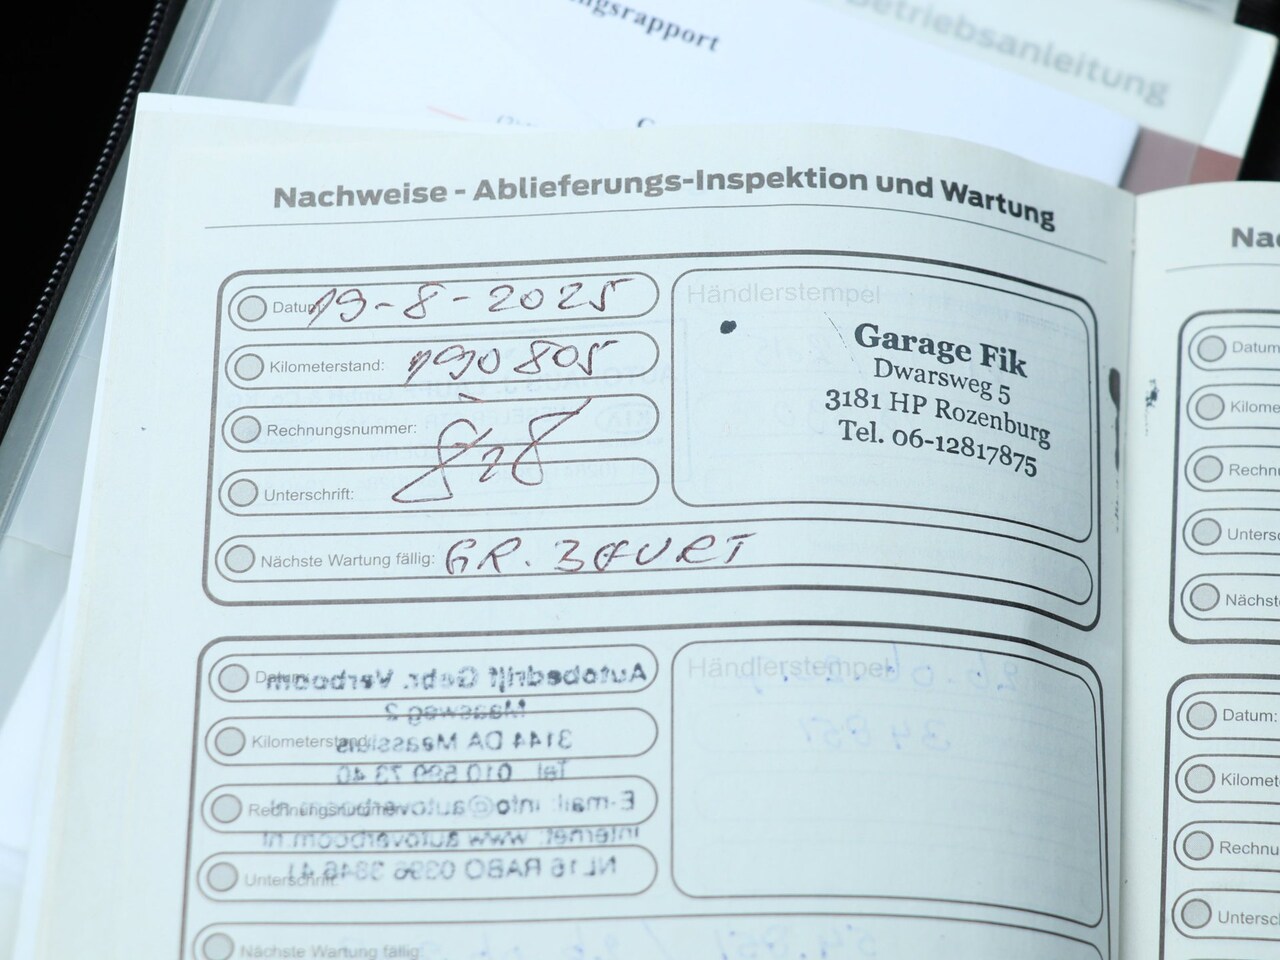 ngsrapport
Betriebsanleitung
Nachweise - Ablieferungs-Inspektion und Wartung
Datum 19-8-2025
Kilometerstand: 190805
Rechnungsnummer:
Unterschrift:
Nächste Wartung fällig: GR. BEURT
Händlerstempel
Garage Fik
Dwarsweg 5
3181 HP Rozenburg
Tel. 06-12817875
Datum:
Kilometerstand:
Rechnungsnummer:
Unterschrift:
Nächste Wartung fällig:
Händlerstempel
Autobedrijf Gebr. Verboom
Maasweg 2
3144 DA Maassluis
Tel. 010 599 73 40
E-mail: info@autoverboom.nl
Internet: www.autoverboom.nl
Na
Datum
Kilome
Rechnu
Untersc
Nächst
Datum:
Kilomet
Rechnu
Untersch